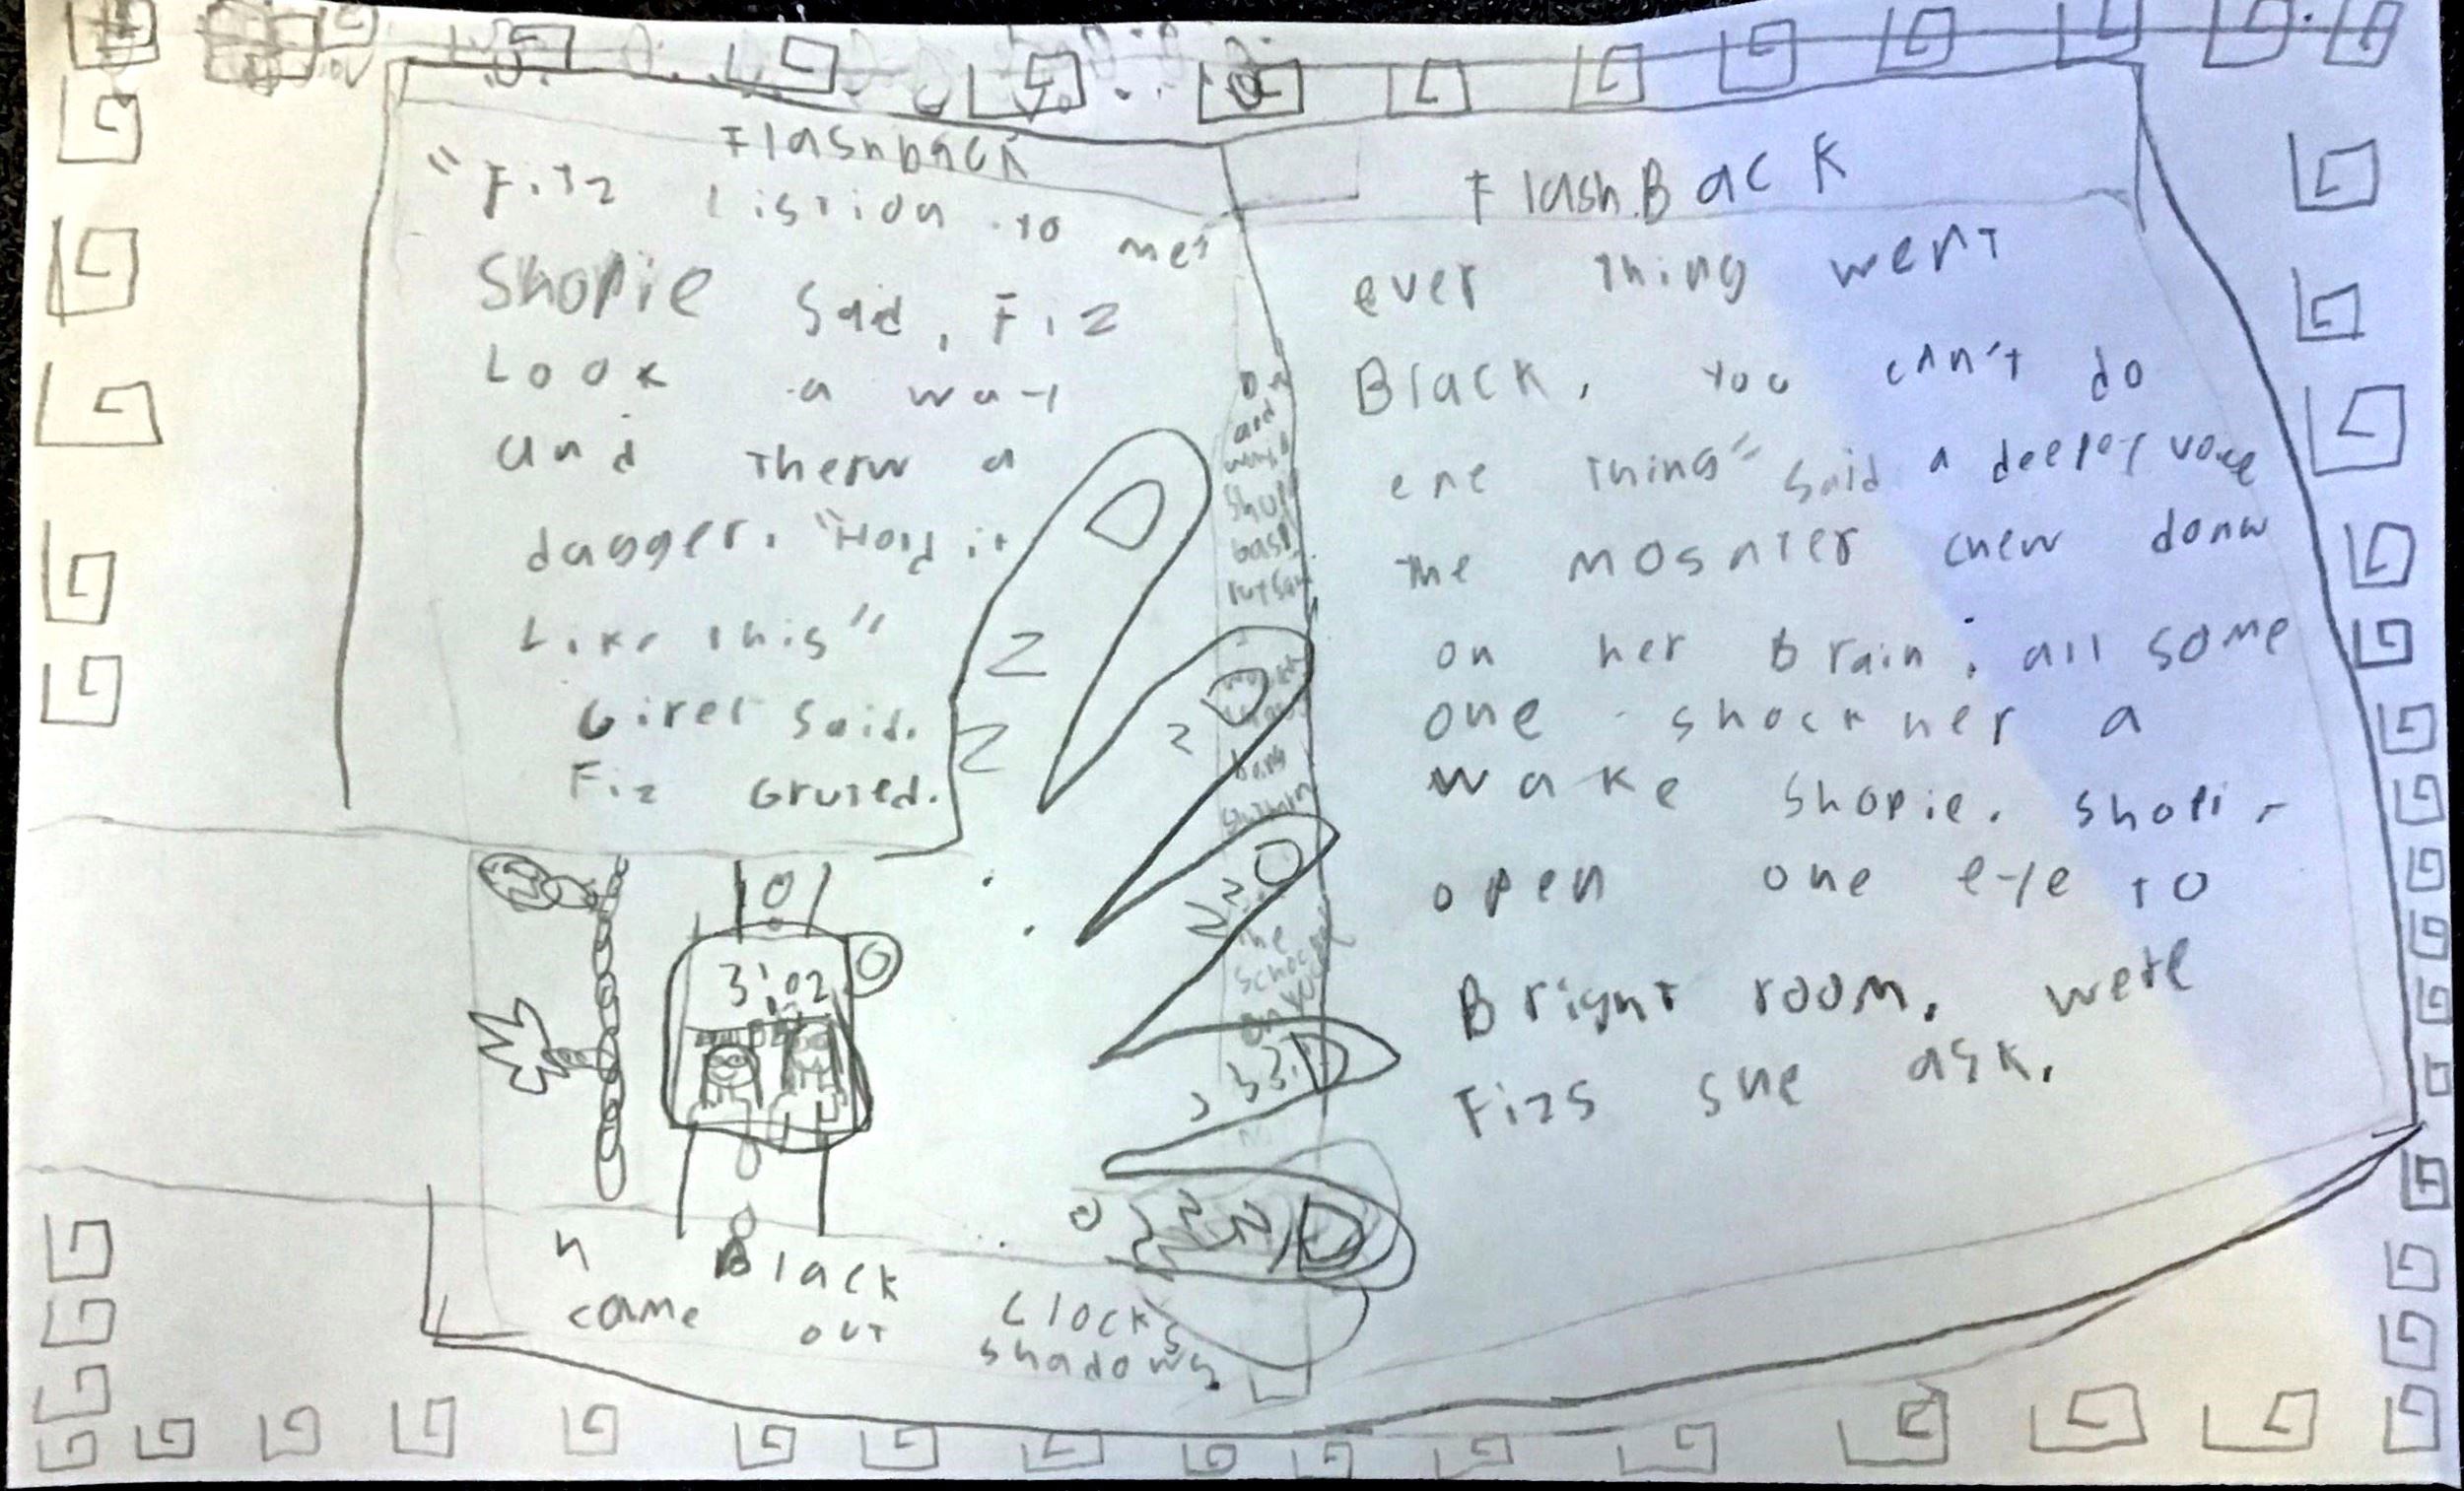 Flashback
"Fitz Listion to me"
Shopie Said, Fiz
Look a way
and therw a
dagger. "Hold it
Like this"
Girel Said.
Fiz Gruted.
3:02
n Black Clocks
came out shadows.
FlashBack
ever thing went
Black, You can't do
ene thing" Said a deeper voice
the mosnter chew donw
on her Brain, all some
one shock her a
wake Shopie. Shopie
open one eye to
Bright room. were
Fizs she ask.